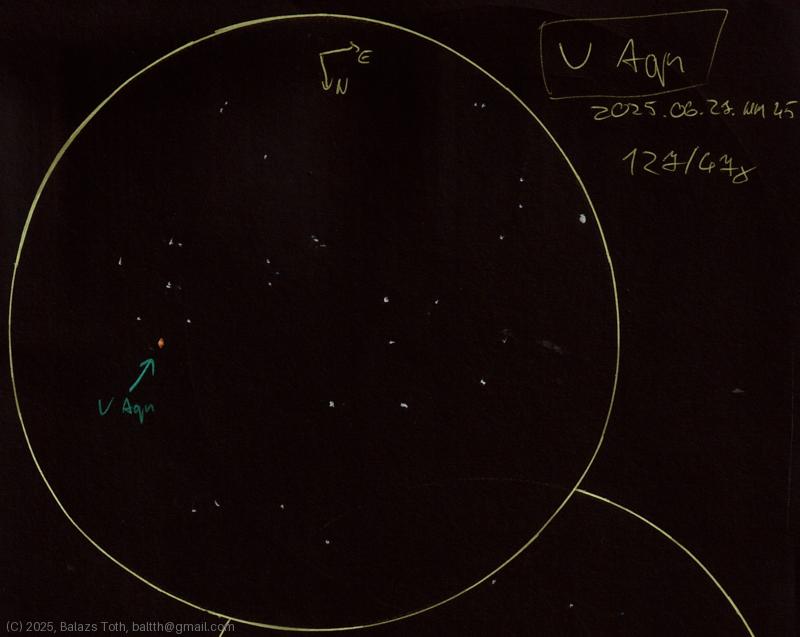 V Aqn
E
N
2025.06.27.
127/47x
V Aqn
(C) 2025, Balazs Toth, baltth@gmail.com